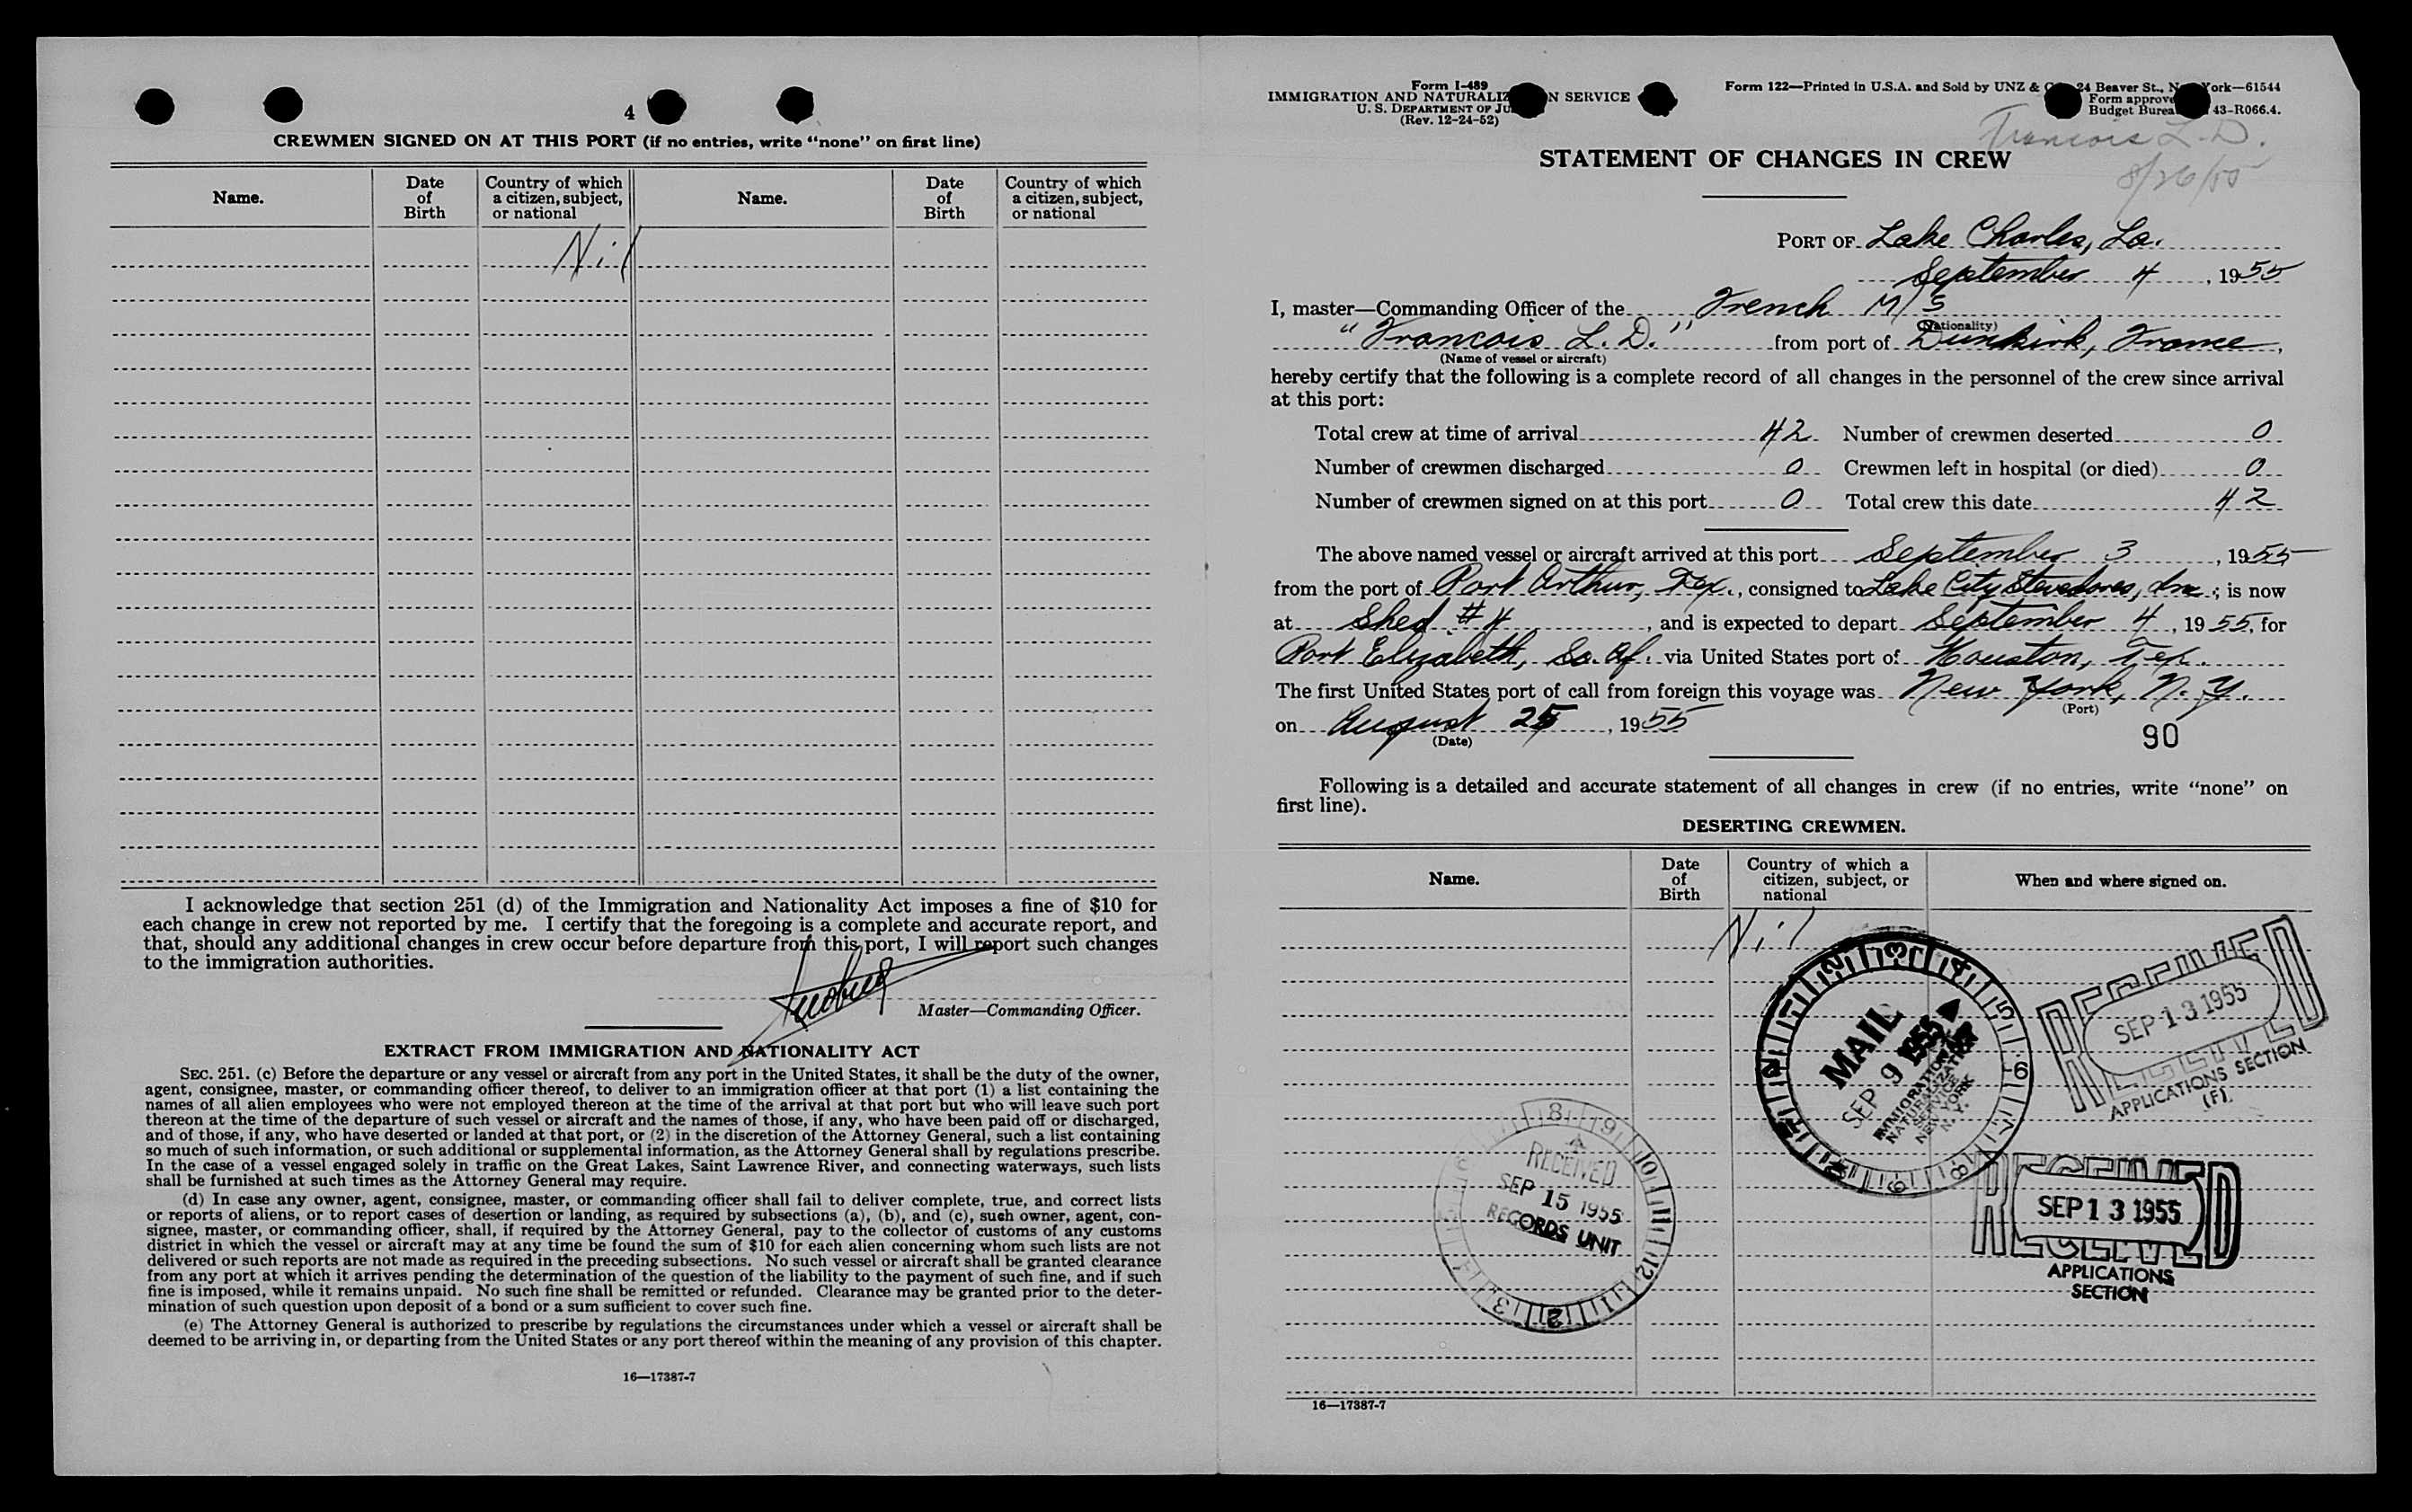 4
CREWMEN SIGNED ON AT THIS PORT (if no entries, write "none" on first line)
Name. Date of Birth Country of which a citizen, subject, or national Name. Date of Birth Country of which a citizen, subject, or national
Nil
I acknowledge that section 251 (d) of the Immigration and Nationality Act imposes a fine of $10 for
each change in crew not reported by me. I certify that the foregoing is a complete and accurate report, and
that, should any additional changes in crew occur before departure from this port, I will report such changes
to the immigration authorities.
Master—Commanding Officer.
EXTRACT FROM IMMIGRATION AND NATIONALITY ACT
SEC. 251. (c) Before the departure or any vessel or aircraft from any port in the United States, it shall be the duty of the owner,
agent, consignee, master, or commanding officer thereof, to deliver to an immigration officer at that port (1) a list containing the
names of all alien employees who were not employed thereon at the time of the arrival at that port but who will leave such port
thereon at the time of the departure of such vessel or aircraft and the names of those, if any, who have been paid off or discharged,
and of those, if any, who have deserted or landed at that port, or (2) in the discretion of the Attorney General, such a list containing
so much of such information, or such additional or supplemental information, as the Attorney General shall by regulations prescribe.
In the case of a vessel engaged solely in traffic on the Great Lakes, Saint Lawrence River, and connecting waterways, such lists
shall be furnished at such times as the Attorney General may require.
(d) In case any owner, agent, consignee, master, or commanding officer shall fail to deliver complete, true, and correct lists
or reports of aliens, or to report cases of desertion or landing, as required by subsections (a), (b), and (c), such owner, agent, con-
signee, master, or commanding officer, shall, if required by the Attorney General, pay to the collector of customs of any customs
district in which the vessel or aircraft may at any time be found the sum of $10 for each alien concerning whom such lists are not
delivered or such reports are not made as required in the preceding subsections. No such vessel or aircraft shall be granted clearance
from any port at which it arrives pending the determination of the question of the liability to the payment of such fine, and if such
fine is imposed, while it remains unpaid. No such fine shall be remitted or refunded. Clearance may be granted prior to the deter-
mination of such question upon deposit of a bond or a sum sufficient to cover such fine.
(e) The Attorney General is authorized to prescribe by regulations the circumstances under which a vessel or aircraft shall be
deemed to be arriving in, or departing from the United States or any port thereof within the meaning of any provision of this chapter.
16—17387-7
Form I-489
IMMIGRATION AND N SERVICE
U. S. DEPARTMENT OF
(Rev. 12-24-52)
Form 122—Printed in U.S.A. and Sold by UNZ & 24 Beaver St., York—61544
Form
Budget 43-R066.4.
Francois L. D.
8/26/55
STATEMENT OF CHANGES IN CREW
PORT OF Lake Charles, La.
September 4, 1955
I, master—Commanding Officer of the French M/S
(Nationality)
"Francois L. D." from port of Dunkirk, France,
(Name of vessel or aircraft)
hereby certify that the following is a complete record of all changes in the personnel of the crew since arrival
at this port:
Total crew at time of arrival 42 Number of crewmen deserted 0
Number of crewmen discharged 0 Crewmen left in hospital (or died) 0
Number of crewmen signed on at this port 0 Total crew this date 42
The above named vessel or aircraft arrived at this port September 3, 1955
from the port of Port Arthur, Tex., consigned to Lake City Stevedores, Inc.; is now
at Shed #4, and is expected to depart September 4, 1955, for
Port Elizabeth, So. Af. via United States port of Houston, Tex.
The first United States port of call from foreign this voyage was New York, N. Y.
(Port)
on August 25, 1955
(Date)
90
Following is a detailed and accurate statement of all changes in crew (if no entries, write "none" on
first line).
DESERTING CREWMEN.
Name. Date of Birth Country of which a citizen, subject, or national When and where signed on.
Nil
MAIL
SEP 9 1955
IMMIGRATION &
NATURALIZATION
SERVICE
NEW YORK
N. Y.
RECEIVED
SEP 13 1955
APPLICATIONS SECTION
(F).
RECEIVED
SEP 15 1955
RECORDS UNIT
RECEIVED
SEP 13 1955
APPLICATIONS
SECTION
16—17387-7